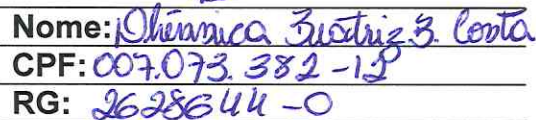 Nome: Beatriz B. Costa
CPF: 007.073.382-12
RG: 2628644-0